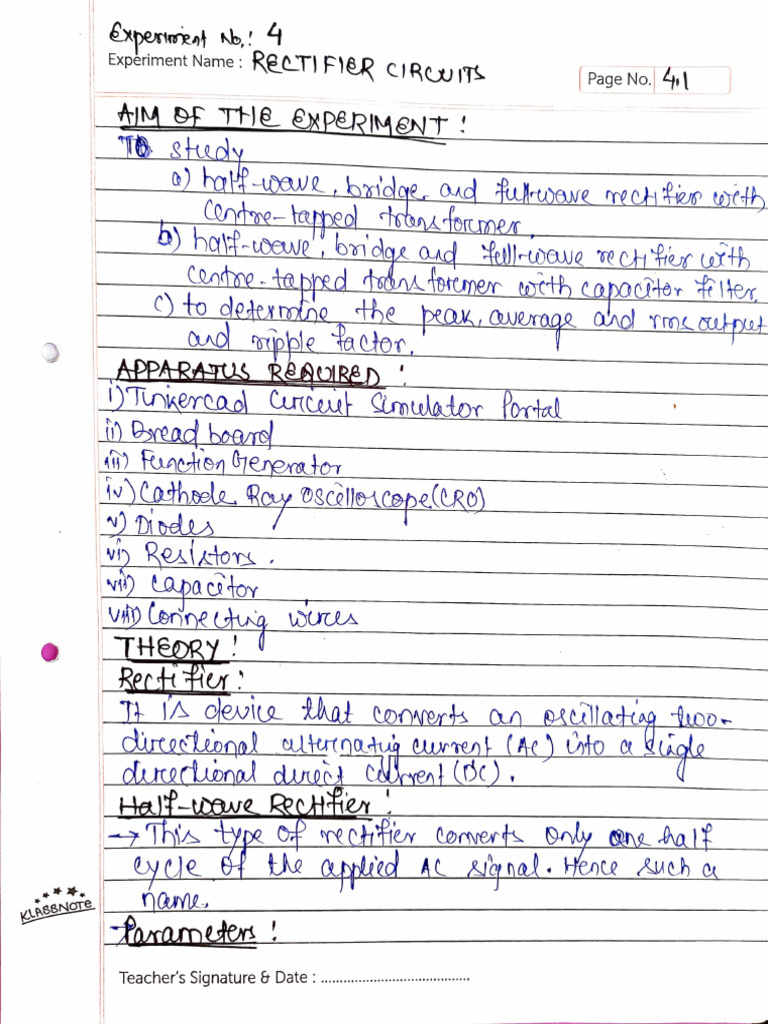 Experiment No.: 4
Experiment Name : RECTIFIER CIRCUITS
Page No. 4.1
AIM OF THE EXPERIMENT :
To study
a) half-wave, bridge, and full-wave rectifier with
centre-tapped transformer.
b) half-wave, bridge and full-wave rectifier with
centre-tapped transformer with capacitor filter.
c) to determine the peak, average and rms output
and ripple factor.
APPARATUS REQUIRED :
i) Tinkercad Circuit Simulator Portal
ii) Bread board
iii) Function Generator
iv) Cathode Ray Oscilloscope(CRO)
v) Diodes
vi) Resistors.
vii) Capacitor
viii) Connecting wires
THEORY :
Rectifier :
It is device that converts an oscillating two-
directional alternating current (AC) into a single
directional direct current (DC).
Half-wave Rectifier :
→ This type of rectifier converts only one half
cycle of the applied AC signal. Hence such a
name.
Parameters :
KLASSNOTE
Teacher's Signature & Date : ........................................